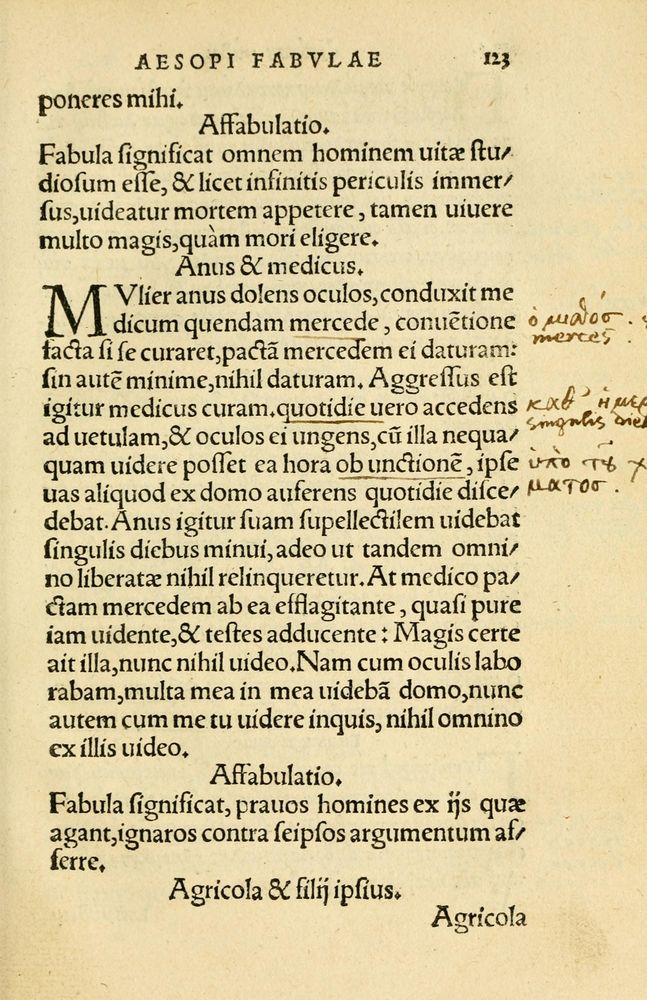 AESOPI FABVLAE 123
poneres mihi.
Affabulatio.
Fabula ſignificat omnem hominem uitæ ſtu/
dioſum eſſe, & licet infinitis periculis immer/
ſus, uideatur mortem appetere, tamen uiuere
multo magis, quàm mori eligere.
Anus & medicus.
MVlier anus dolens oculos, conduxit me
dicum quendam mercede, conuētione
facta ſi ſe curaret, pactā mercedem ei daturam:
ſin autē minime, nihil daturam. Aggreſſus eſt
igitur medicus curam. quotidie uero accedens
ad uetulam, & oculos ei ungens, cū illa nequa/
quam uidere poſſet ea hora ob unctionē, ipſe
uas aliquod ex domo auferens quotidie diſce/
debat. Anus igitur ſuam ſupellectilem uidebat
ſingulis diebus minui, adeo ut tandem omni/
no liberatæ nihil relinqueretur. At medico pa/
ctam mercedem ab ea efflagitante, quaſi pure
iam uidente, & teſtes adducente: Magis certe
ait illa, nunc nihil uideo. Nam cum oculis labo
rabam, multa mea in mea uidebā domo, nunc
autem cum me tu uidere inquis, nihil omnino
ex illis uideo.
Affabulatio.
Fabula ſignificat, prauos homines ex ijs quæ
agant, ignaros contra ſeipſos argumentum aſ/
ferre.
Agricola & filij ipſius.
Agricola
ὁ μισθοσ.
merces
καθ' ἡμερ
singulis die
ὑπὸ τȣ χ
ματοσ.